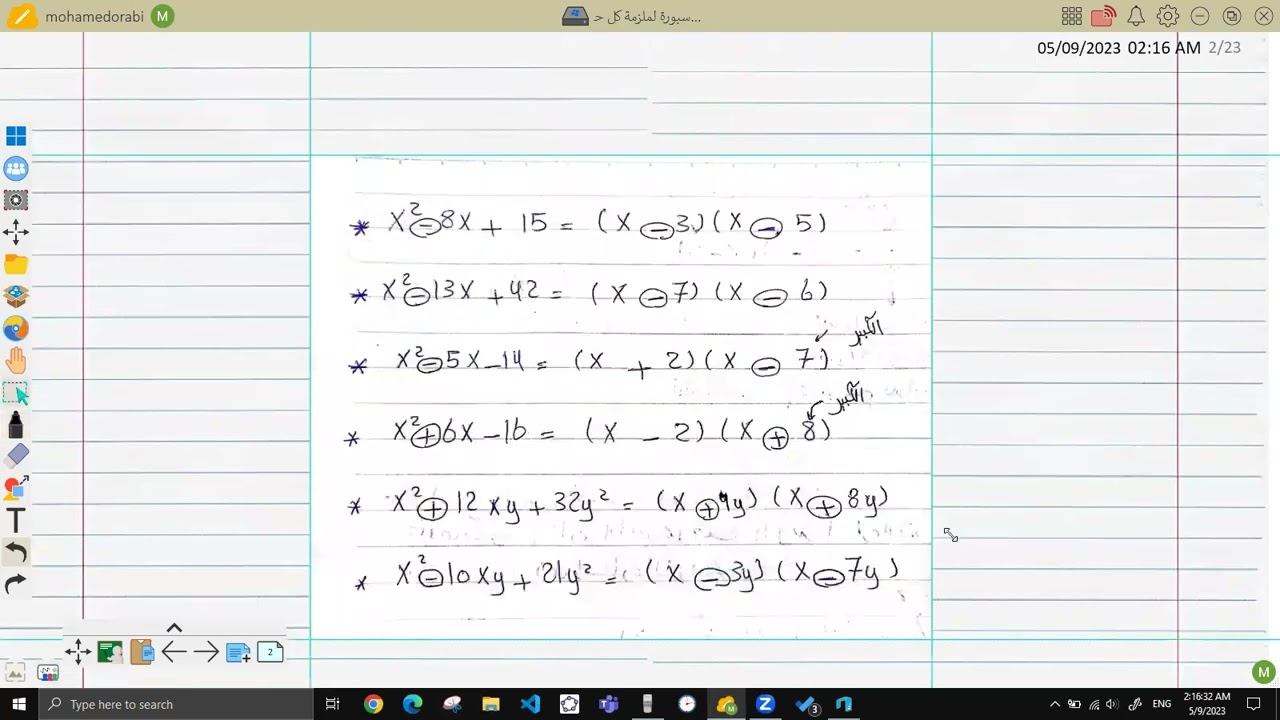 mohamedorabi M
سبورة لملزمة كل ح...
05/09/2023 02:16 AM 2/23
* X² - 8X + 15 = (X - 3)(X - 5)
* X² - 13X + 42 = (X - 7)(X - 6)
الكبير
* X² - 5X - 14 = (X + 2)(X - 7)
الكبير
* X² + 6X - 16 = (X - 2)(X + 8)
* X² + 12Xy + 32y² = (X + 4y)(X + 8y)
* X² - 10Xy + 21y² = (X - 3y)(X - 7y)
T
2
M
Type here to search
3
ENG
2:16:32 AM
5/9/2023